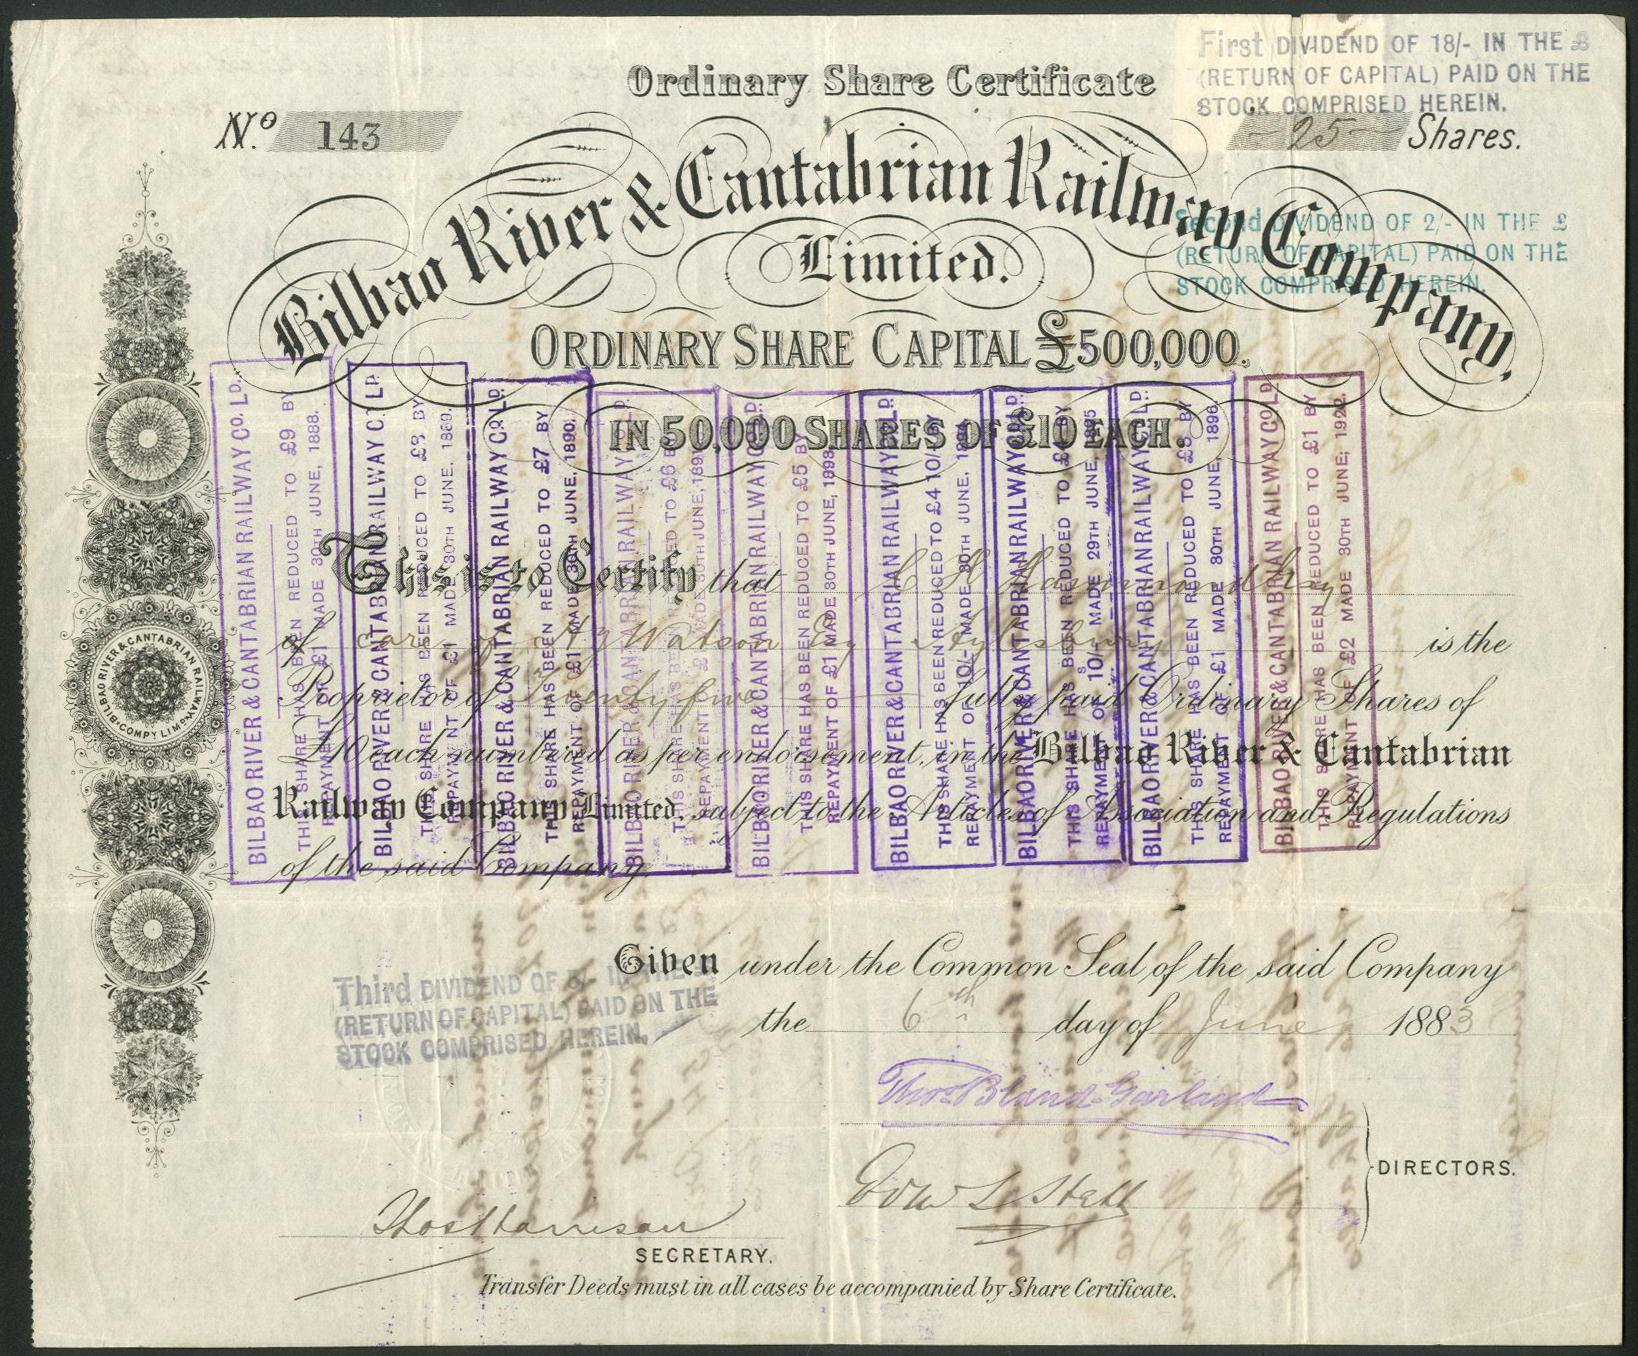 First DIVIDEND OF 18/- IN THE £
(RETURN OF CAPITAL) PAID ON THE
STOCK COMPRISED HEREIN.
Ordinary Share Certificate
No. 143
25 Shares.
Bilbao River & Cantabrian Railway Company,
Limited.
Second DIVIDEND OF 2/- IN THE £
(RETURN OF CAPITAL) PAID ON THE
STOCK COMPRISED HEREIN.
ORDINARY SHARE CAPITAL £500,000.
IN 50,000 SHARES OF £10 EACH.
BILBAO RIVER & CANTABRIAN RAILWAY CO. LD.
THIS SHARE HAS BEEN REDUCED TO £9 BY
REPAYMENT OF £1 MADE 30TH JUNE, 1888.
BILBAO RIVER & CANTABRIAN RAILWAY CO. LD.
THIS SHARE HAS BEEN REDUCED TO £8 BY
REPAYMENT OF £1 MADE 30TH JUNE, 1889.
BILBAO RIVER & CANTABRIAN RAILWAY CO. LD.
THIS SHARE HAS BEEN REDUCED TO £7 BY
REPAYMENT OF £1 MADE 30TH JUNE, 1890.
BILBAO RIVER & CANTABRIAN RAILWAY CO. LD.
THIS SHARE HAS BEEN REDUCED TO £6 BY
REPAYMENT OF £1 MADE 30TH JUNE, 1891
BILBAO RIVER & CANTABRIAN RAILWAY CO. LD.
THIS SHARE HAS BEEN REDUCED TO £5 BY
REPAYMENT OF £1 MADE 30TH JUNE, 1893
BILBAO RIVER & CANTABRIAN RAILWAY CO. LD.
THIS SHARE HAS BEEN REDUCED TO £4 10/- BY
REPAYMENT OF 10/- MADE 30TH JUNE, 1894
BILBAO RIVER & CANTABRIAN RAILWAY CO. LD.
THIS SHARE HAS BEEN REDUCED TO £4 BY
REPAYMENT OF 10/- MADE 29TH JUNE, 1895
BILBAO RIVER & CANTABRIAN RAILWAY CO. LD.
THIS SHARE HAS BEEN REDUCED TO £3 BY
REPAYMENT OF £1 MADE 30TH JUNE, 1896.
BILBAO RIVER & CANTABRIAN RAILWAY CO. LD.
THIS SHARE HAS BEEN REDUCED TO £1 BY
REPAYMENT OF £2 MADE 30TH JUNE,
This is to Certify that C H Hammond Esq
of care of Watson Esq Aylesbury is the
Proprietor of Twenty five fully paid Ordinary Shares of
£10 each numbered as per endorsement, in the Bilbao River & Cantabrian
Railway Company Limited, subject to the Articles of Association and Regulations
of the said Company.
BILBAO RIVER & CANTABRIAN RAILWAY COMPY LIMD
Given under the Common Seal of the said Company
the 6th day of June 1883
Third DIVIDEND OF IN THE
(RETURN OF CAPITAL) PAID ON THE
STOCK COMPRISED HEREIN.
Thos Bland Garland
DIRECTORS.
Thos Harrison
SECRETARY.
Transfer Deeds must in all cases be accompanied by Share Certificate.